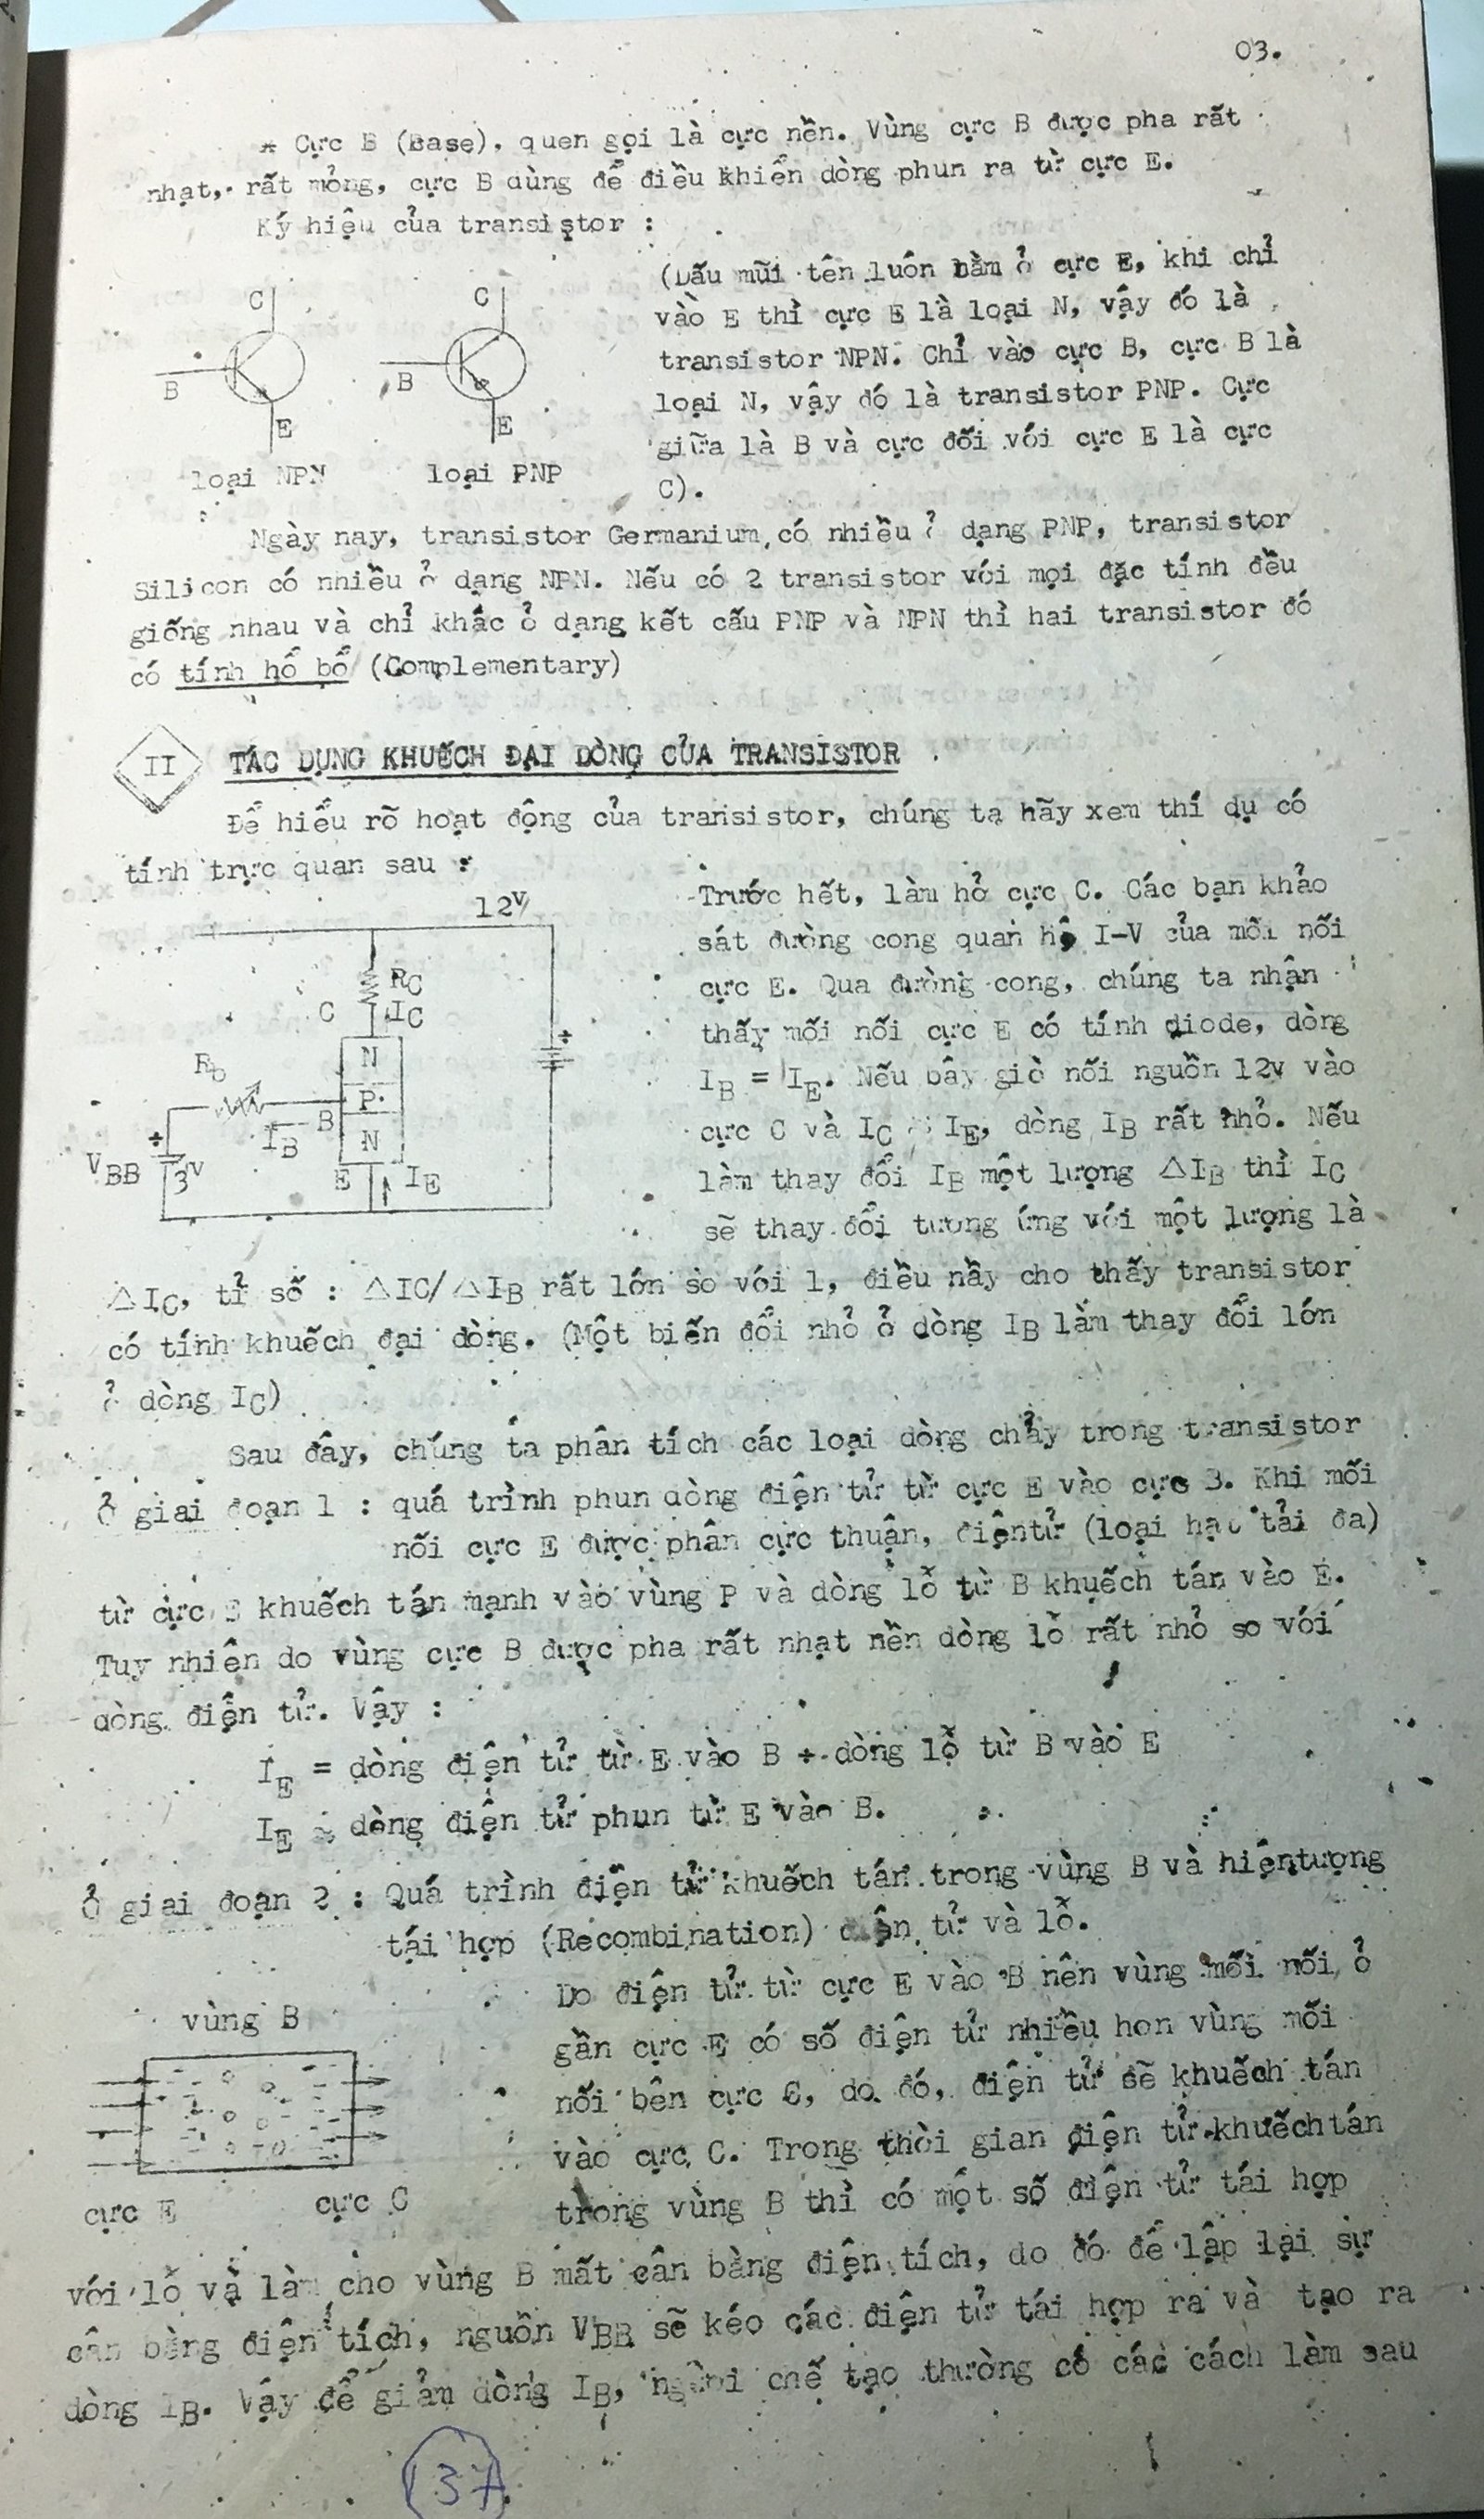 03.
* Cực B (Base), quen gọi là cực nền. Vùng cực B được pha rất
nhạt, rất mỏng, cực B dùng để điều khiển dòng phun ra từ cực E.
Ký hiệu của transistor :
(Dấu mũi tên luôn nằm ở cực E, khi chỉ
vào E thì cực E là loại N, vậy đó là
transistor NPN. Chỉ vào cực B, cực B là
loại N, vậy đó là transistor PNP. Cực
giữa là B và cực đối với cực E là cực
C).
C
B
E
loại NPN
C
B
E
loại PNP
Ngày nay, transistor Germanium có nhiều ở dạng PNP, transistor
Silicon có nhiều ở dạng NPN. Nếu có 2 transistor với mọi đặc tính đều
giống nhau và chỉ khác ở dạng kết cấu PNP và NPN thì hai transistor đó
có tính hỗ bổ (Complementary)
II TÁC DỤNG KHUẾCH ĐẠI DÒNG CỦA TRANSISTOR
Để hiểu rõ hoạt động của transistor, chúng ta hãy xem thí dụ có
tính trực quan sau :
12V
RC
C IC
N
Rb
P
B
IB
N
VBB 3V
E IE
Trước hết, làm hở cực C. Các bạn khảo
sát đường cong quan hệ I-V của mối nối
cực E. Qua đường cong, chúng ta nhận
thấy mối nối cực E có tính diode, dòng
IB = IE. Nếu bây giờ nối nguồn 12v vào
cực C và IC IE, dòng IB rất nhỏ. Nếu
làm thay đổi IB một lượng △IB thì IC
sẽ thay đổi tương ứng với một lượng là
△IC, tỉ số : △IC/△IB rất lớn so với 1, điều nầy cho thấy transistor
có tính khuếch đại dòng. (Một biến đổi nhỏ ở dòng IB làm thay đổi lớn
ở dòng IC)
Sau đây, chúng ta phân tích các loại dòng chảy trong transistor
Ở giai đoạn 1 : quá trình phun dòng điện tử từ cực E vào cực B. Khi mối
nối cực E được phân cực thuận, điệntử (loại hạt tải đa)
từ cực E khuếch tán mạnh vào vùng P và dòng lỗ từ B khuếch tán vào E.
Tuy nhiên do vùng cực B được pha rất nhạt nền dòng lỗ rất nhỏ so với
dòng điện tử. Vậy :
IE = dòng điện tử từ E vào B + dòng lỗ từ B vào E
IE ≈ dòng điện tử phun từ E vào B.
Ở giai đoạn 2 : Quá trình điện tử khuếch tán trong vùng B và hiệntượng
tái hợp (Recombination) điện tử và lỗ.
Do điện tử từ cực E vào B nên vùng mối nối ở
gần cực E có số điện tử nhiều hơn vùng mối
nối bên cực C, do đó, điện tử sẽ khuếch tán
vào cực C. Trong thời gian điện tử khuếchtán
trong vùng B thì có một số điện tử tái hợp
vùng B
cực E cực C
với lỗ và làm cho vùng B mất cân bằng điện tích, do đó để lập lại sự
cân bằng điện tích, nguồn VBB sẽ kéo các điện tử tái hợp ra và tạo ra
dòng IB. Vậy để giảm dòng IB, người chế tạo thường có các cách làm sau
137